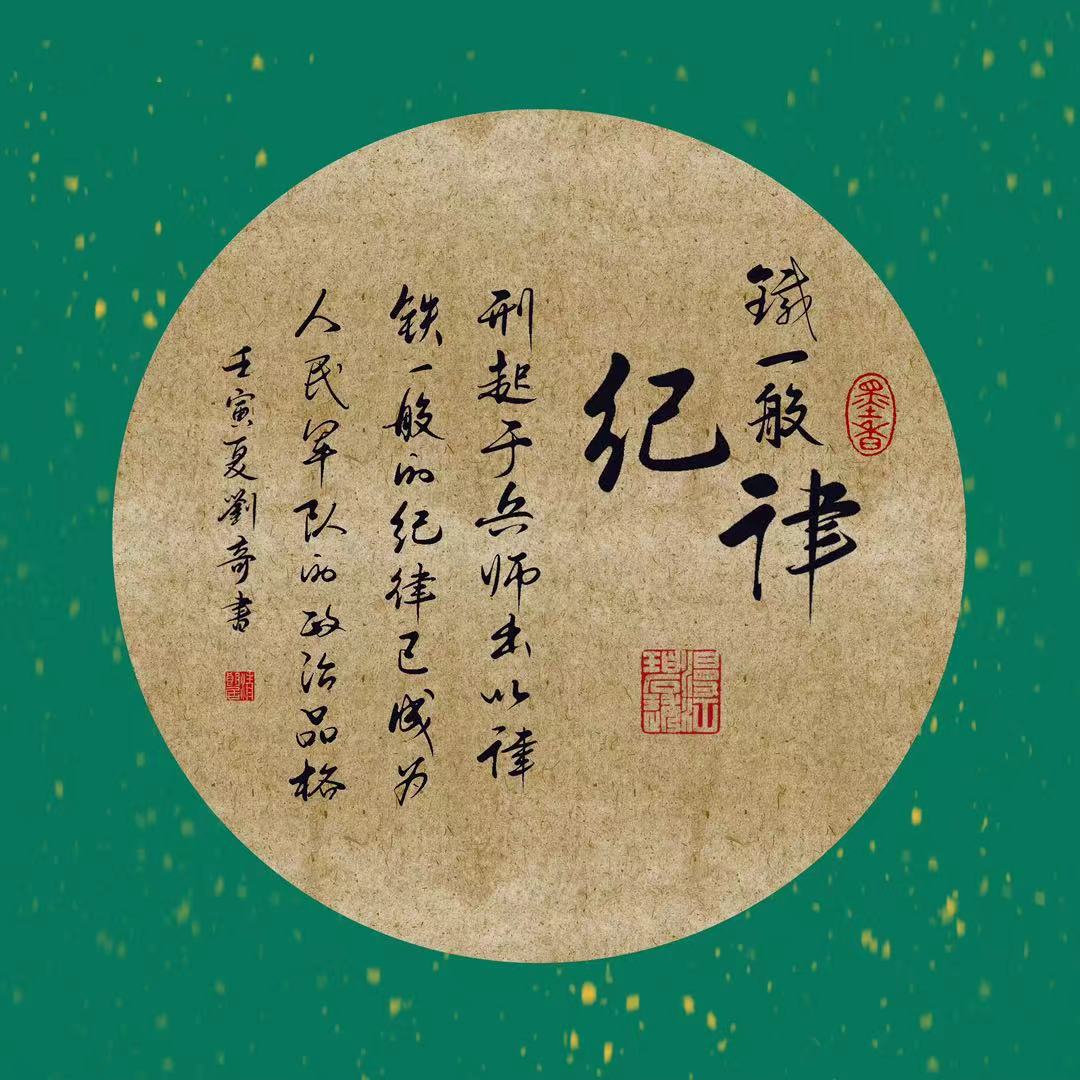 鐵一般
紀律
墨香
刑起于兵师出以律
铁一般的纪律已成为
人民军队的政治品格
壬寅夏劉奇書